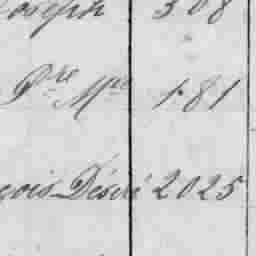 Joseph 308
Pre Mre 181
çois Désiré 2025